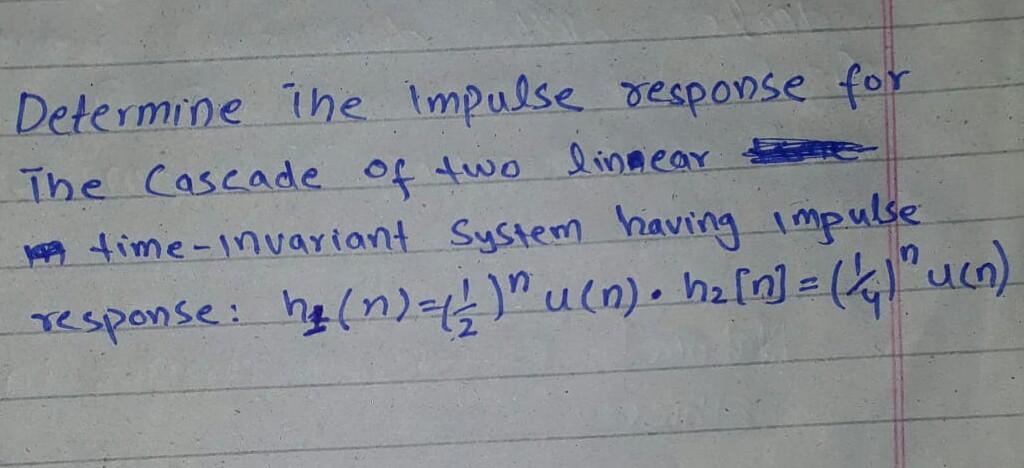 Determine The Impulse response for
The Cascade of two linnear
time-Invariant System having impulse
response: h1(n)=(1/2)^n u(n). h2[n]=(1/4)^n u(n)